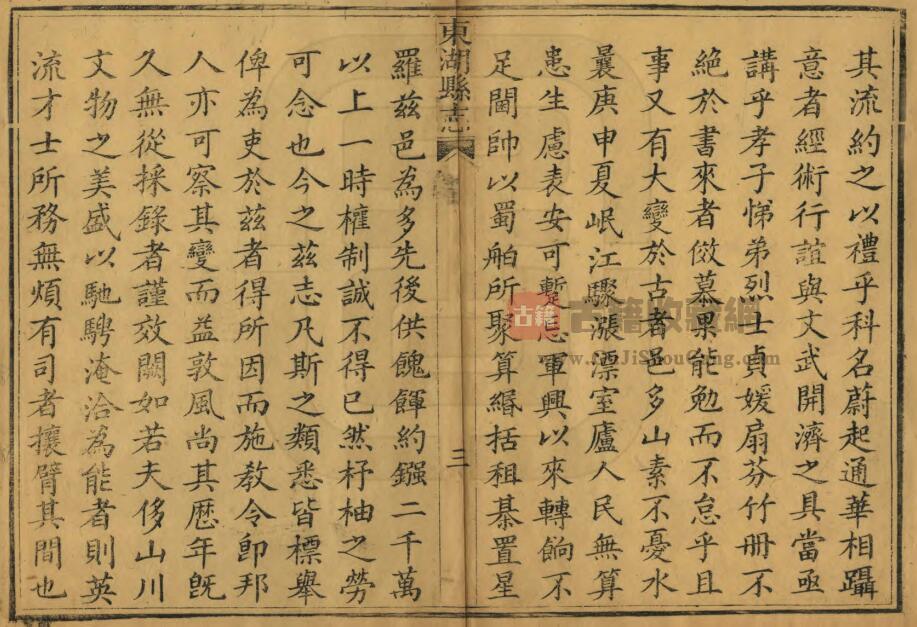 其流約之以禮乎科名蔚起通華相躡
意者經術行誼與文武開濟之具當亟
講乎孝子悌弟烈士貞媛扇芬竹冊不
絕於書來者傚慕果能勉而不怠乎且
事又有大變於古者邑多山素不憂水
曩庚申夏岷江驟漲漂室廬人民無算
患生慮表安可暫忘軍興以來轉餉不
足閫帥以蜀舶所聚算緡括租棊置星
東湖縣志
三
羅茲邑為多先後供餽餫約鏹二千萬
以上一時權制誠不得已然杼柚之勞
可念也今之茲志凡斯之類悉皆標舉
俾為吏於茲者得所因而施教令卽邦
人亦可察其變而益敦風尚其歷年旣
久無從採錄者謹效闕如若夫侈山川
文物之美盛以馳騁淹洽為能者則英
流才士所務無煩有司者攘臂其間也
古籍 古籍收藏網
www.GuJiShouCang.com